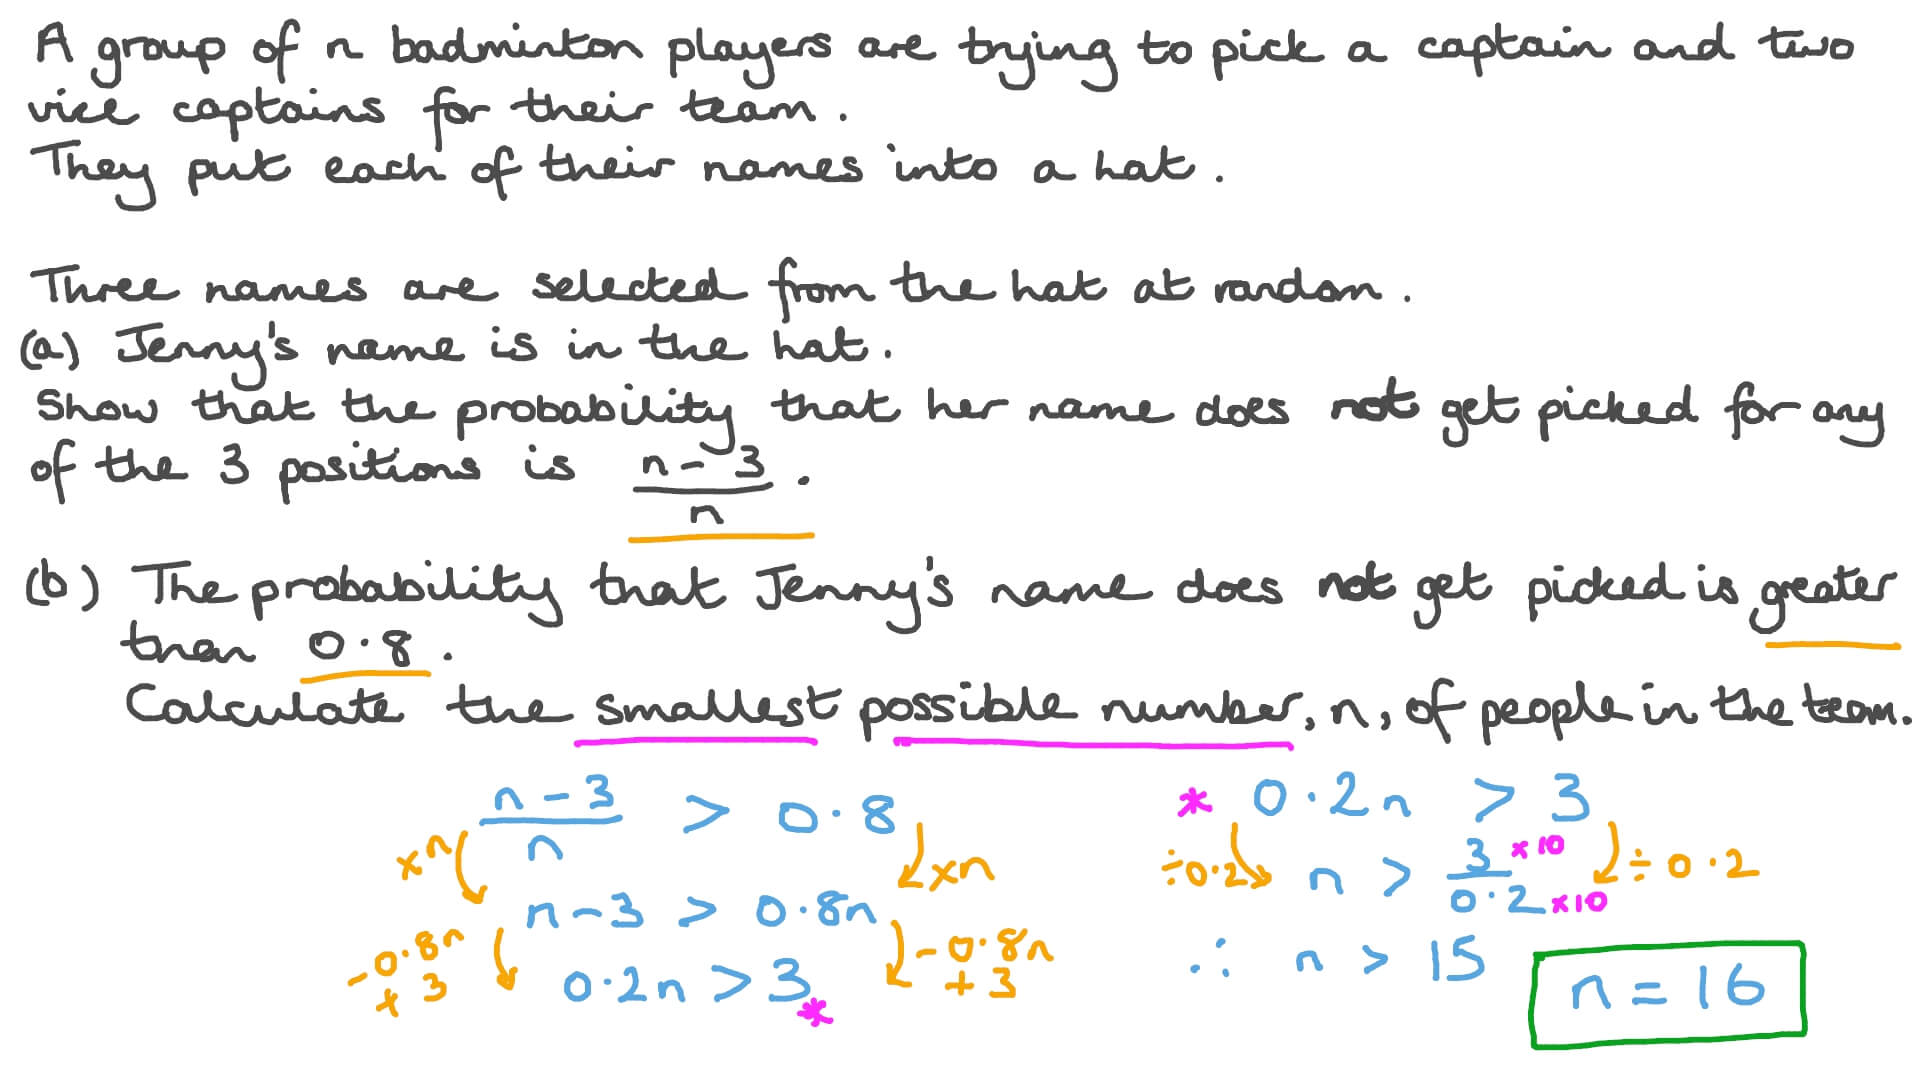 A group of n badminton players are trying to pick a captain and two
vice captains for their team.
They put each of their names into a hat.
Three names are selected from the hat at random.
(a) Jenny's name is in the hat.
Show that the probability that her name does not get picked for any
of the 3 positions is n-3/n.
(b) The probability that Jenny's name does not get picked is greater
than 0.8.
Calculate the smallest possible number, n, of people in the team.
n-3/n > 0.8
×n ×n
n-3 > 0.8n
-0.8n +3 -0.8n +3
0.2n > 3 *
* 0.2n > 3
÷0.2 n > 3 ×10 / 0.2 ×10 ÷0.2
∴ n > 15
n = 16